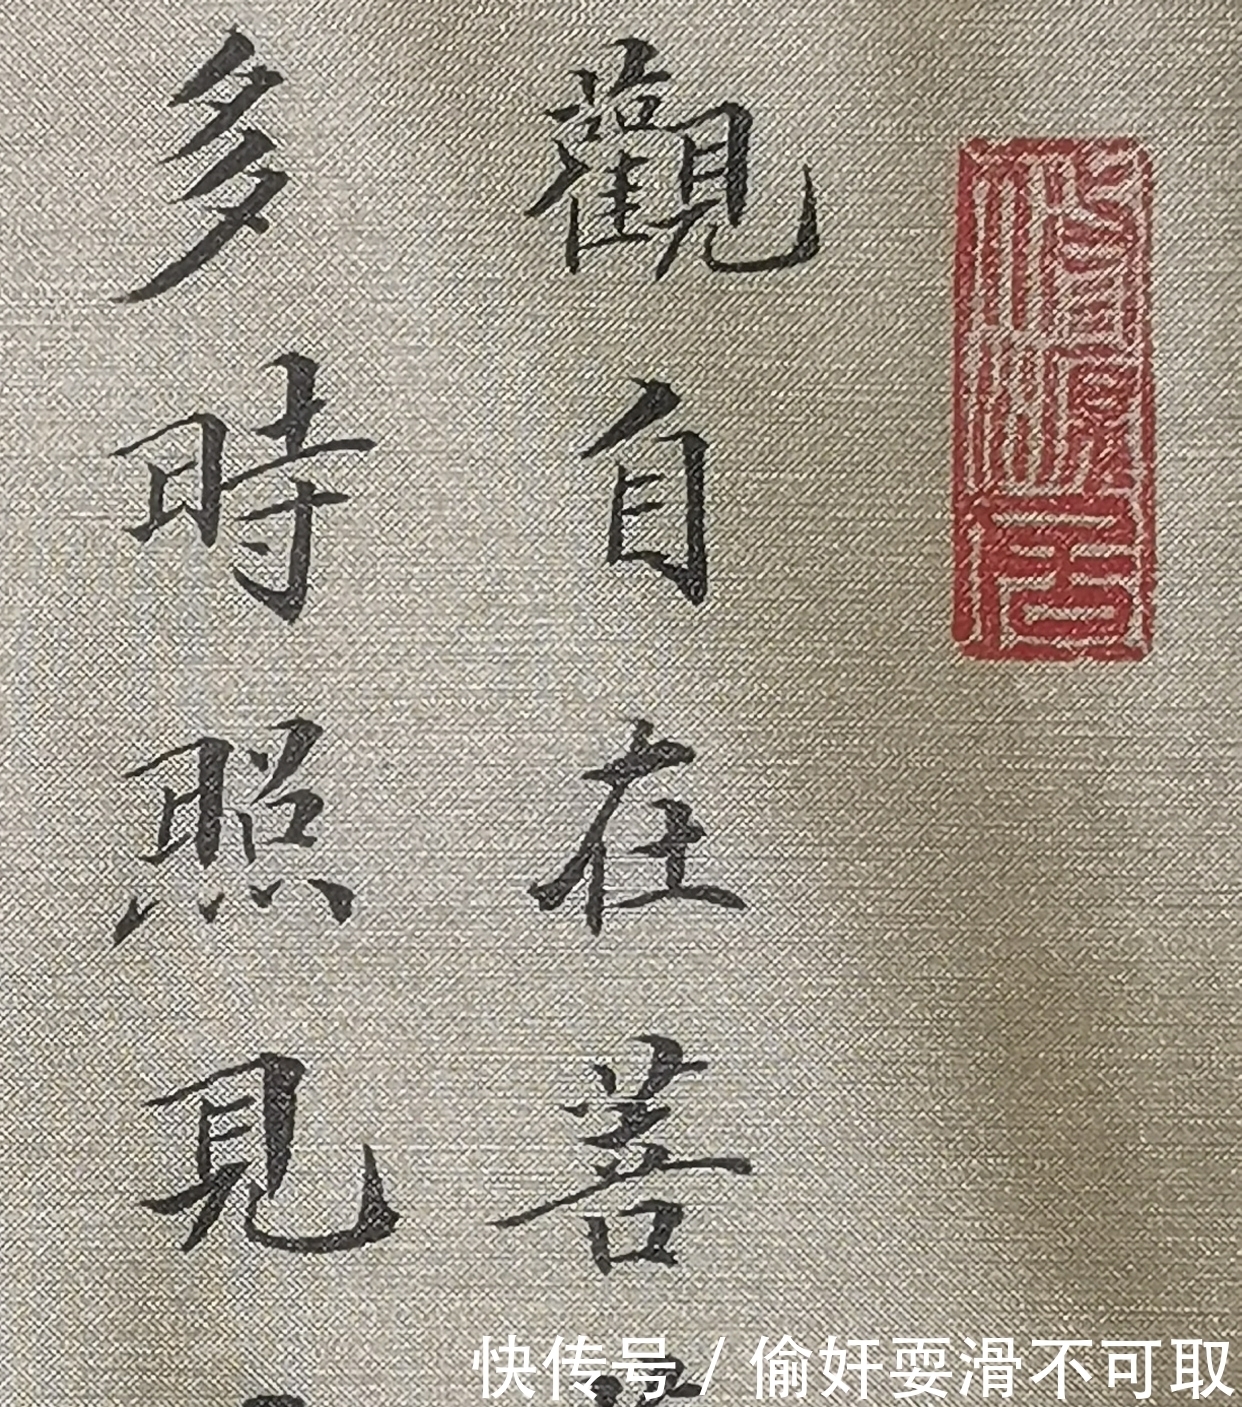 觀自在菩
多時照見
快传号/偷奸耍滑不可取